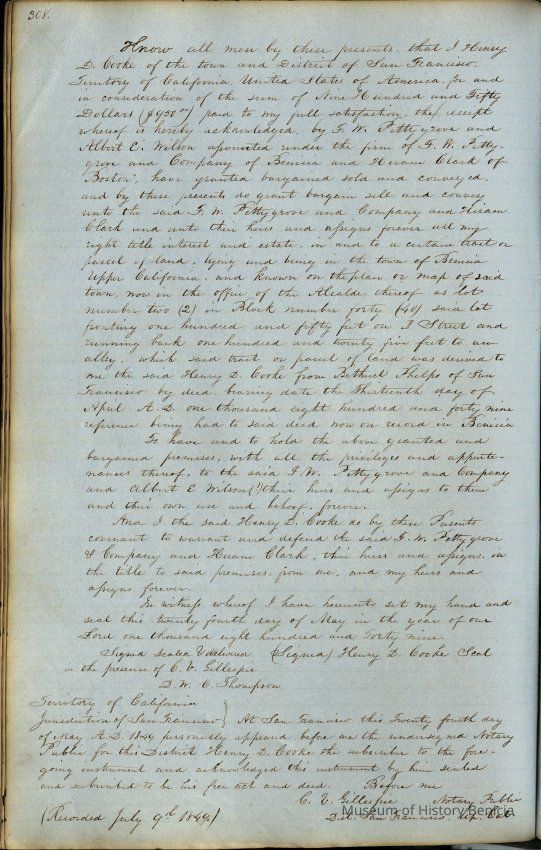 308.
Know all men by these presents, that I Henry
D. Cooke of the town and District of San Francisco,
Territory of California United States of America, for and
in consideration of the sum of Nine Hundred and Fifty
Dollars ($950 00) paid to my full satisfaction, the receipt
whereof is hereby acknowledged, by F. W. Pettygrove and
Albert E. Wilson associated under the firm of F. W. Petty-
grove and Company of Benicia and Hiram Clark of
Boston, have granted bargained sold and conveyed,
and by these presents do grant bargain sell and convey
unto the said F. W. Pettygrove and Company and Hiram
Clark and unto their heirs and assigns forever all my
right title interest and estate, in and to a certain tract or
parcel of land, lying and being in the town of Benicia
Upper California, and known on the plan or map of said
town, now in the office of the Alcalde thereof as lot
number two (2) in Block number forty (40) said lot
fronting one hundred and fifty feet on I Street and
running back one hundred and twenty five feet to an
alley, which said tract or parcel of land was derived to
me the said Henry D. Cooke from Bethuel Phelps of San
Francisco by deed, bearing date the Thirteenth day of
April A. D. one thousand eight hundred and forty nine
reference being had to said deed now on record in Benicia
To have and to hold the above granted and
bargained premises, with all the privileges and appurte-
nances thereof, to the said F. W. Pettygrove and Company
and Albert E Wilson (?) their heirs and assigns to them
and their own use and behoof, forever.
And I the said Henry D. Cooke do by these Presents
covenant to warrant and defend the said F. W. Pettygrove
& Company and Hiram Clark, their heirs and assigns, in
the title to said premises, from me, and my heirs and
assigns forever.
In witness whereof I have hereunto set my hand and
seal this twenty fourth day of May in the year of our
Lord one thousand eight hundred and Forty nine.
Signed sealed & delivered (Signed) Henry D. Cooke Seal
in the presence of C. V. Gillespie
D. W. C. Thompson
Territory of California
Jurisdiction of San Francisco } At San Francisco this Twenty fourth day
of May A. D. 1849 personally appeared before me the undersigned Notary
Public for this District Henry D. Cooke the subscriber to the fore-
going instrument and acknowledged this instrument by him sealed
and subscribed to be his free act and deed. Before me
C. V. Gillespie Notary Public
(Recorded July 9th 1849) Dist. San Francisco, Up. Cal
Museum of History Benicia